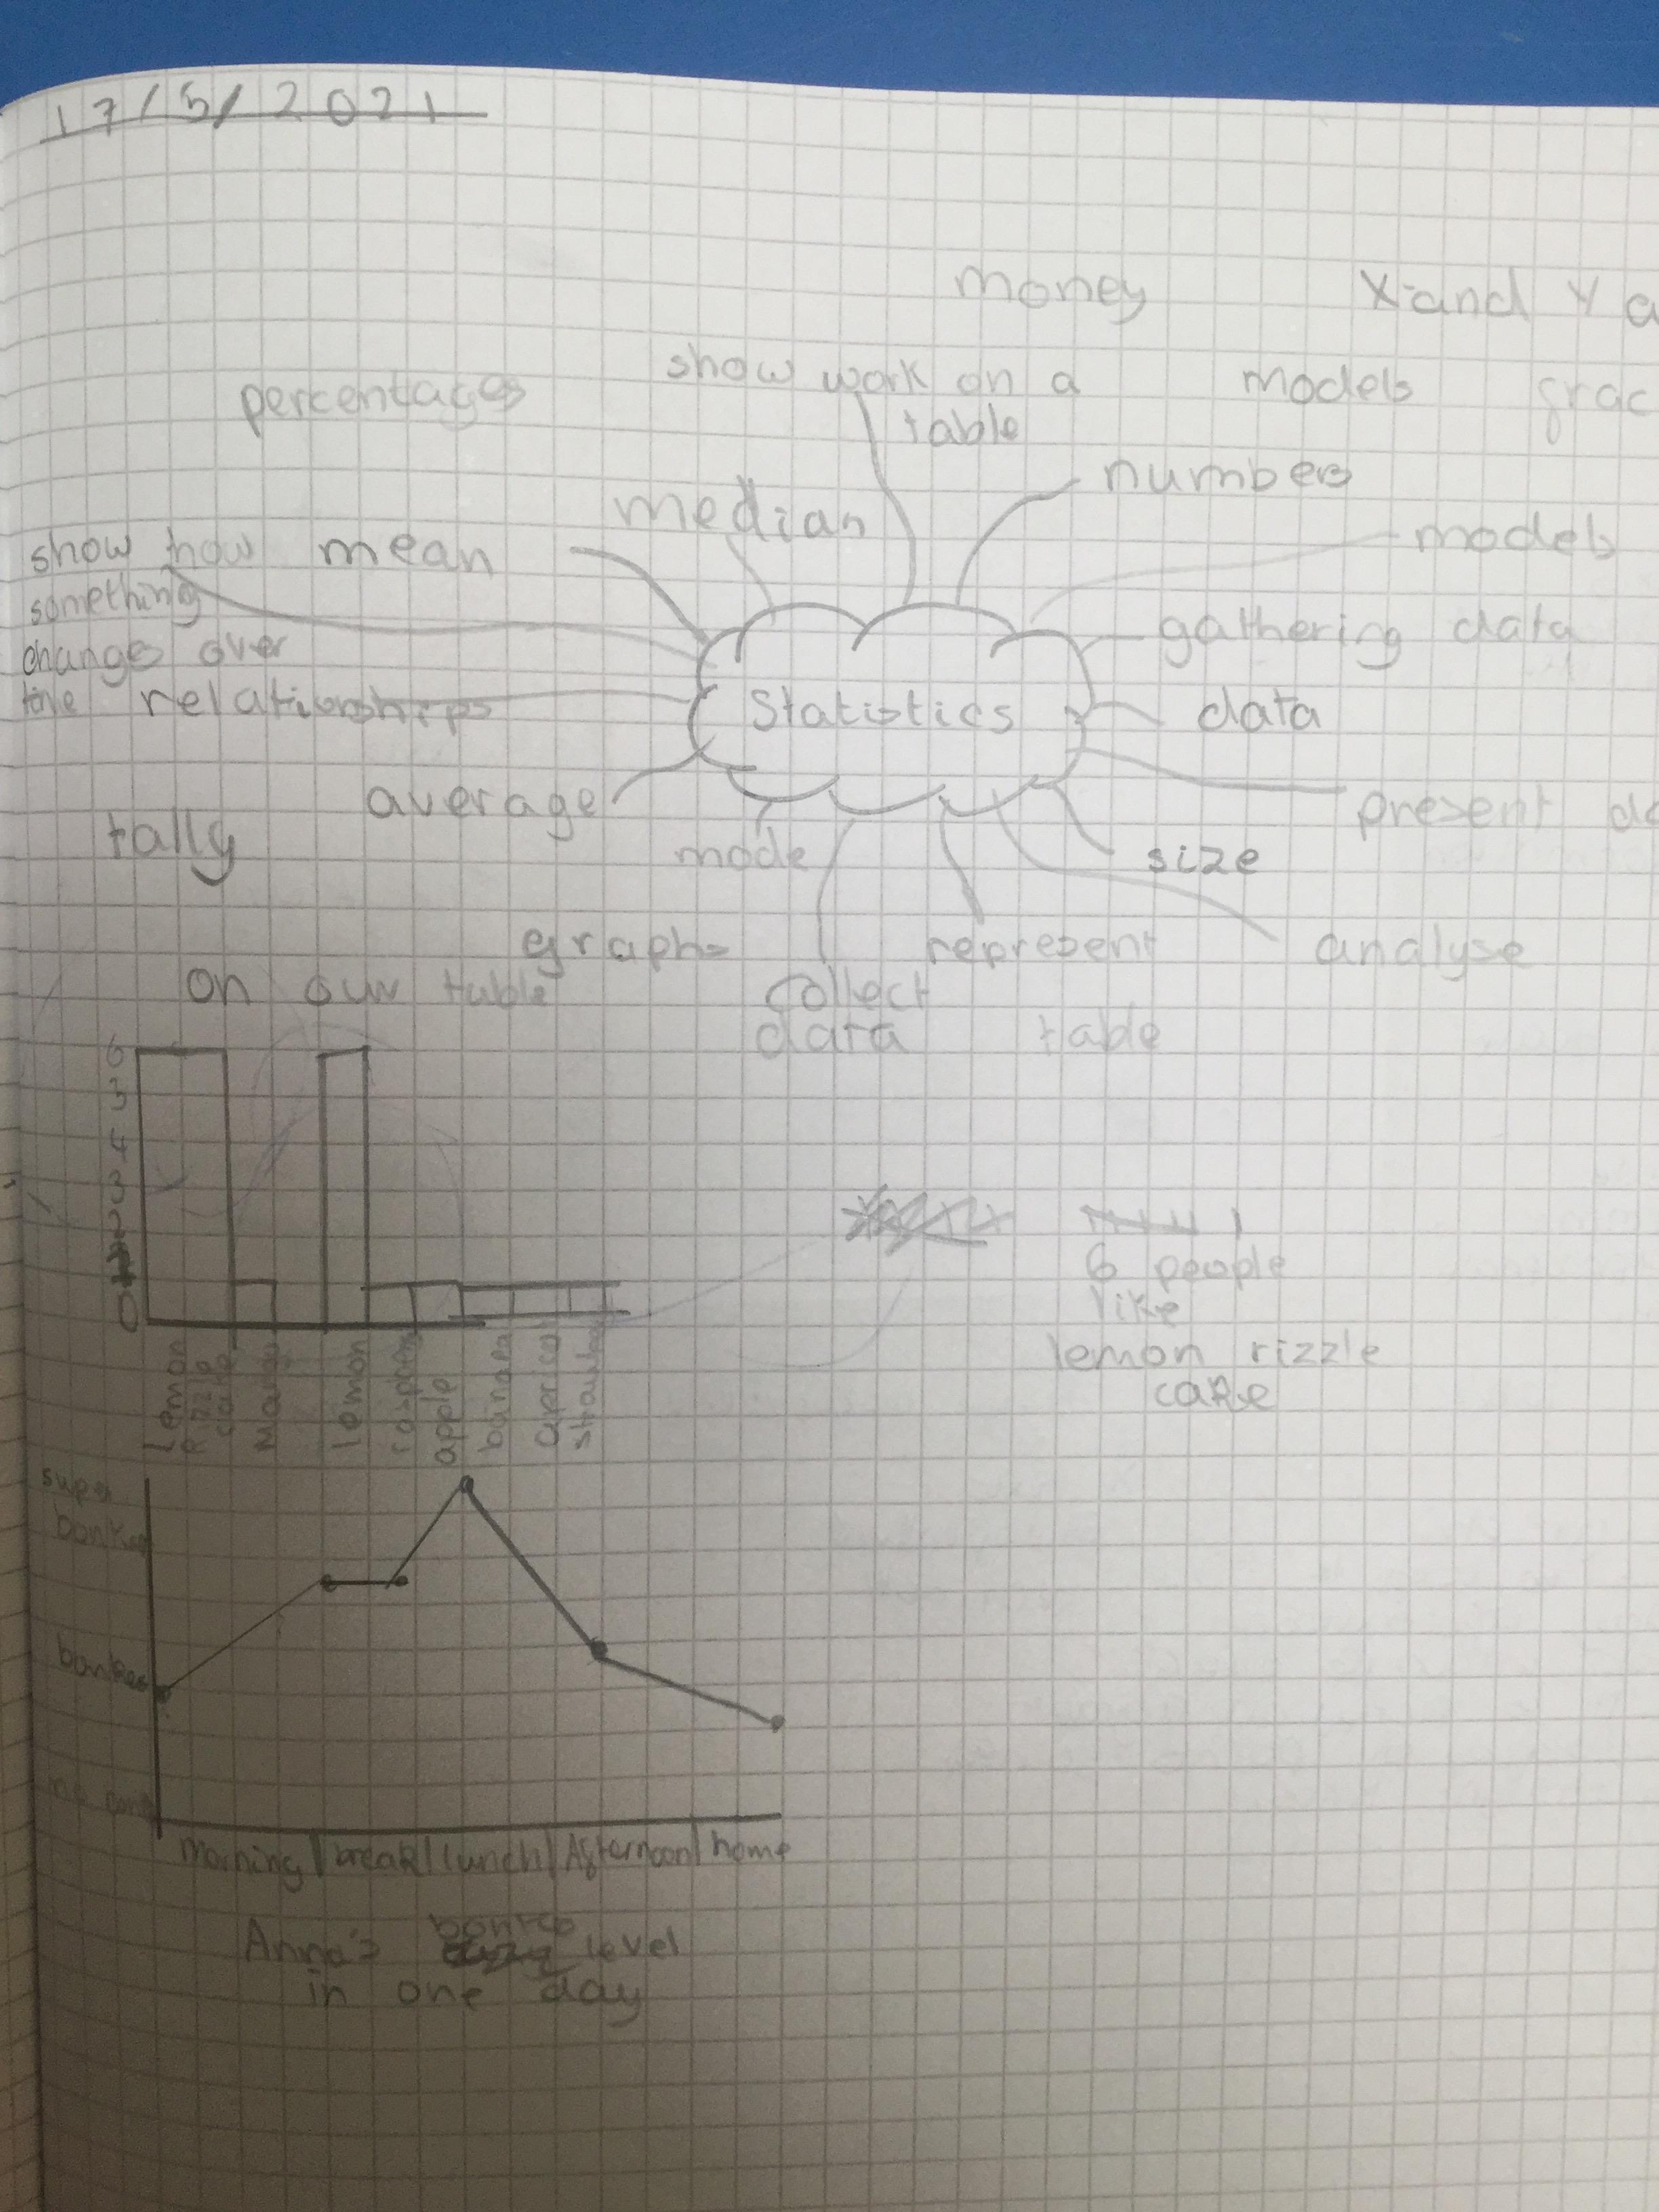 17/5/2021
money
X and Y a
percentages
show work on a
table
models
frac
median
numbers
show how
something
changes over
time
mean
models
gathering data
relationships
Statistics
data
average
present da
tally
mode
size
graphs
represent
analyse
on our table
collect
data
table
6
5
4
3
2
0
Lemon
Rizzle
cake
Mango
lemon
apple
banana
6 people
like
lemon rizzle
cake
super
morning break lunch Afternoon home
Anna's level
in one day